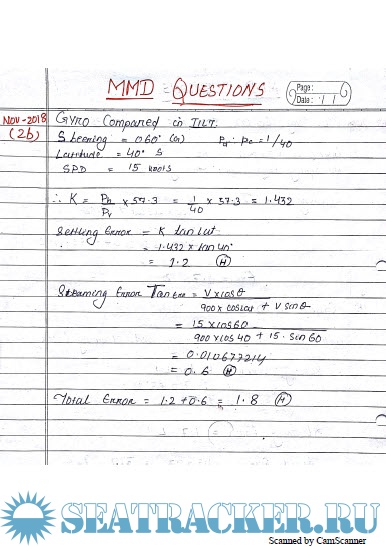 MMD QUESTIONS
Page:
Date: / /
NOV-2018
(2b)
Gyro Compared in TILT.
Steering = 060° (G) Pd : Pc = 1/40
Latitude = 40° S
SPD = 15 knots
∴ K = Ph/Pv × 57.3 = 1/40 × 57.3 = 1.432
Settling Error = K tan Lat
= 1.432 × tan 40°
= 1.2 (H)
Steaming Error Tan = V×cosθ / 900× cosLat + V sinθ
= 15×cos60 / 900×cos40 + 15. Sin60
= 0.010677214
= 0.6 (H)
Total Error = 1.2 + 0.6 = 1.8 (H)
SEATRACKER.RU
Scanned by CamScanner